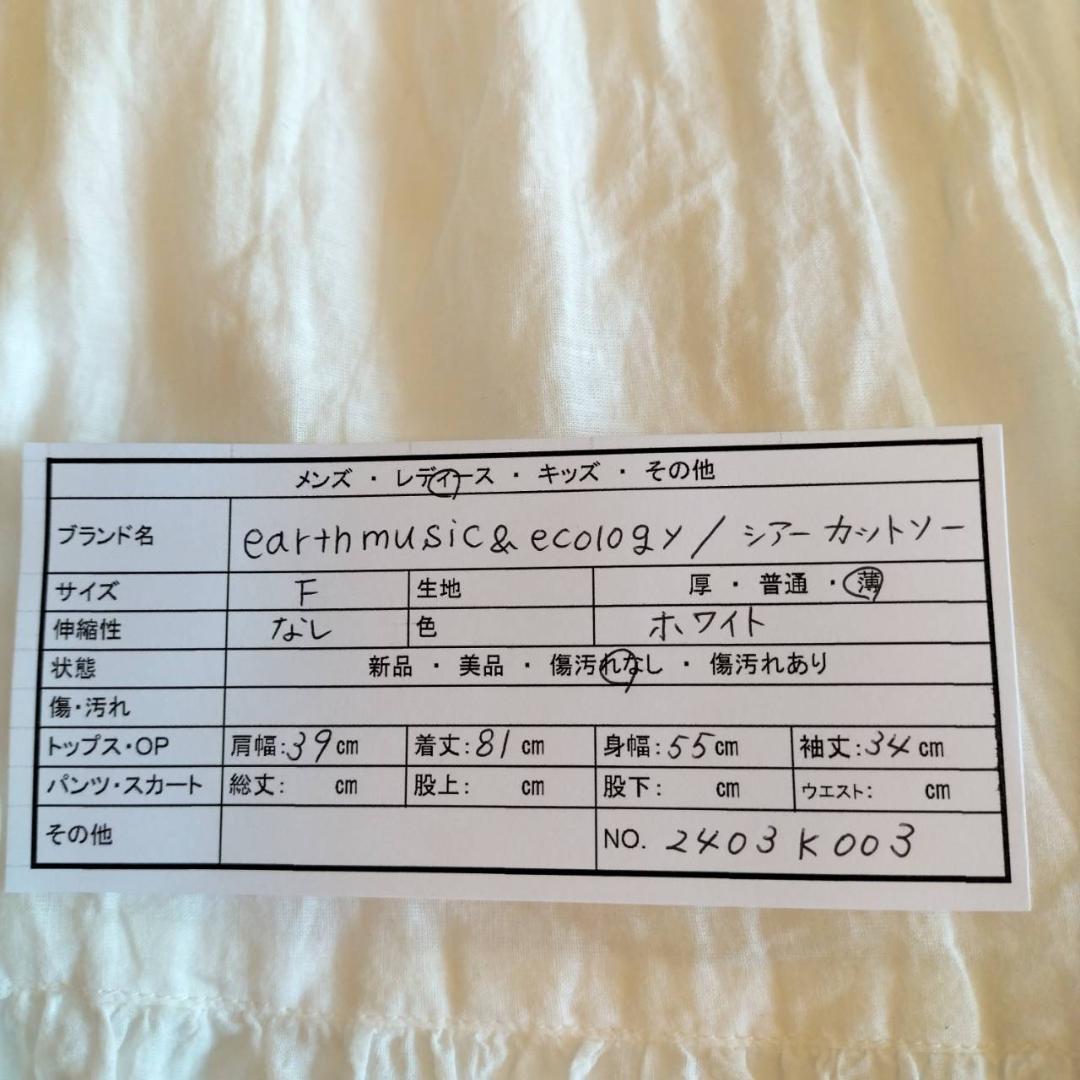 メンズ ・ レディース ・ キッズ ・ その他
ブランド名 earth music & ecology / シアー カットソー
サイズ F 生地 厚 ・ 普通 ・ 薄
伸縮性 なし 色 ホワイト
状態 新品 ・ 美品 ・ 傷汚れなし ・ 傷汚れあり
傷・汚れ
トップス・OP 肩幅:39cm 着丈:81cm 身幅:55cm 袖丈:34cm
パンツ・スカート 総丈: cm 股上: cm 股下: cm ウエスト: cm
その他 NO. 2403K003